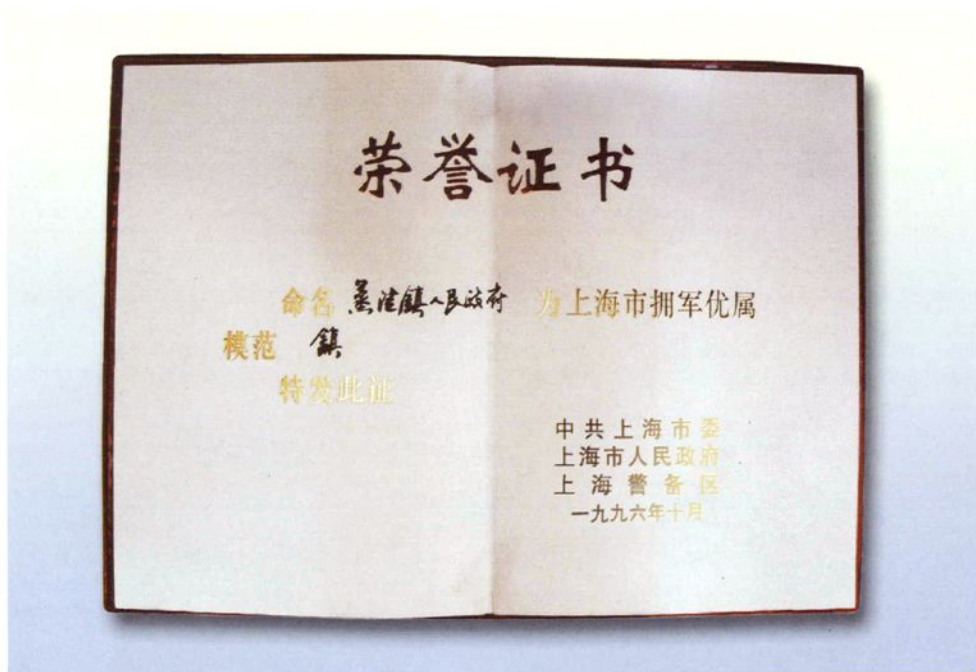 荣誉证书
命名 蒸淀鎮人民政府 为上海市拥军优属
模范 鎮
特发此证
中共上海市委
上海市人民政府
上海警备区
一九九六年十月